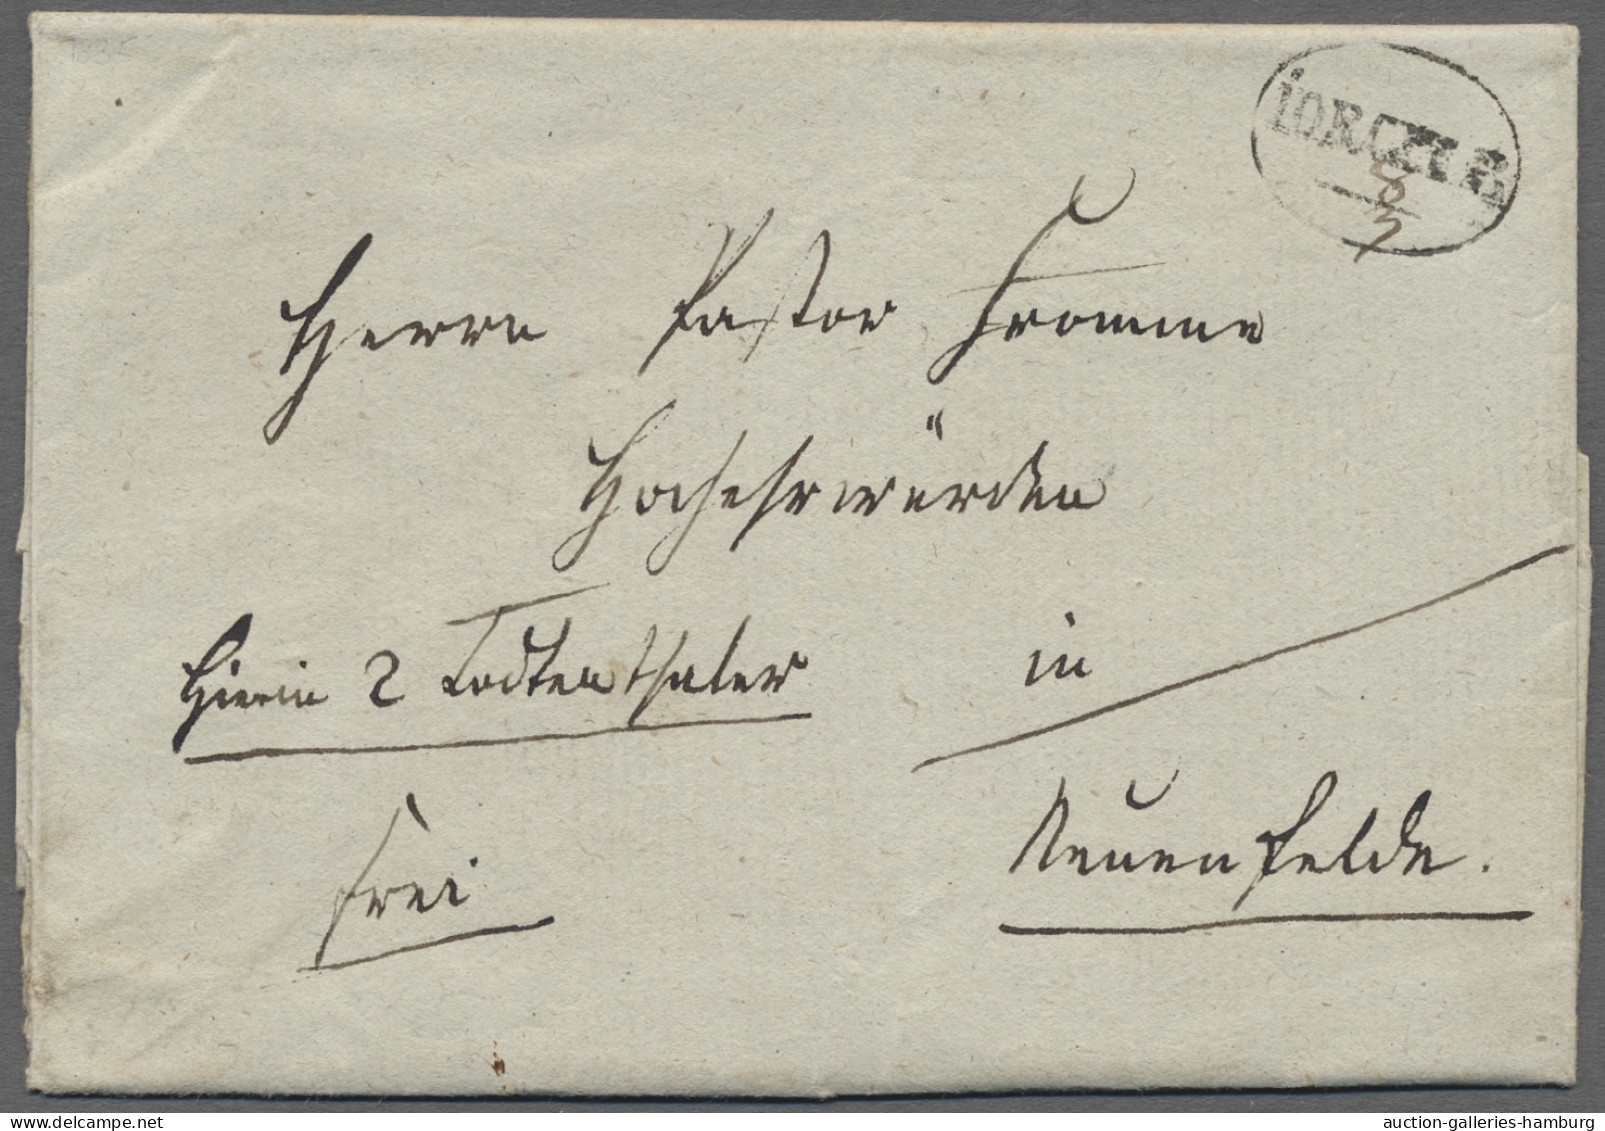 1835
IORCK
8/7
Herrn Pastor Fromme
Hochehrwürden
Hierin 2 Todtenthaler in
frei Neuenfelde.
auction-galleries-hamburg